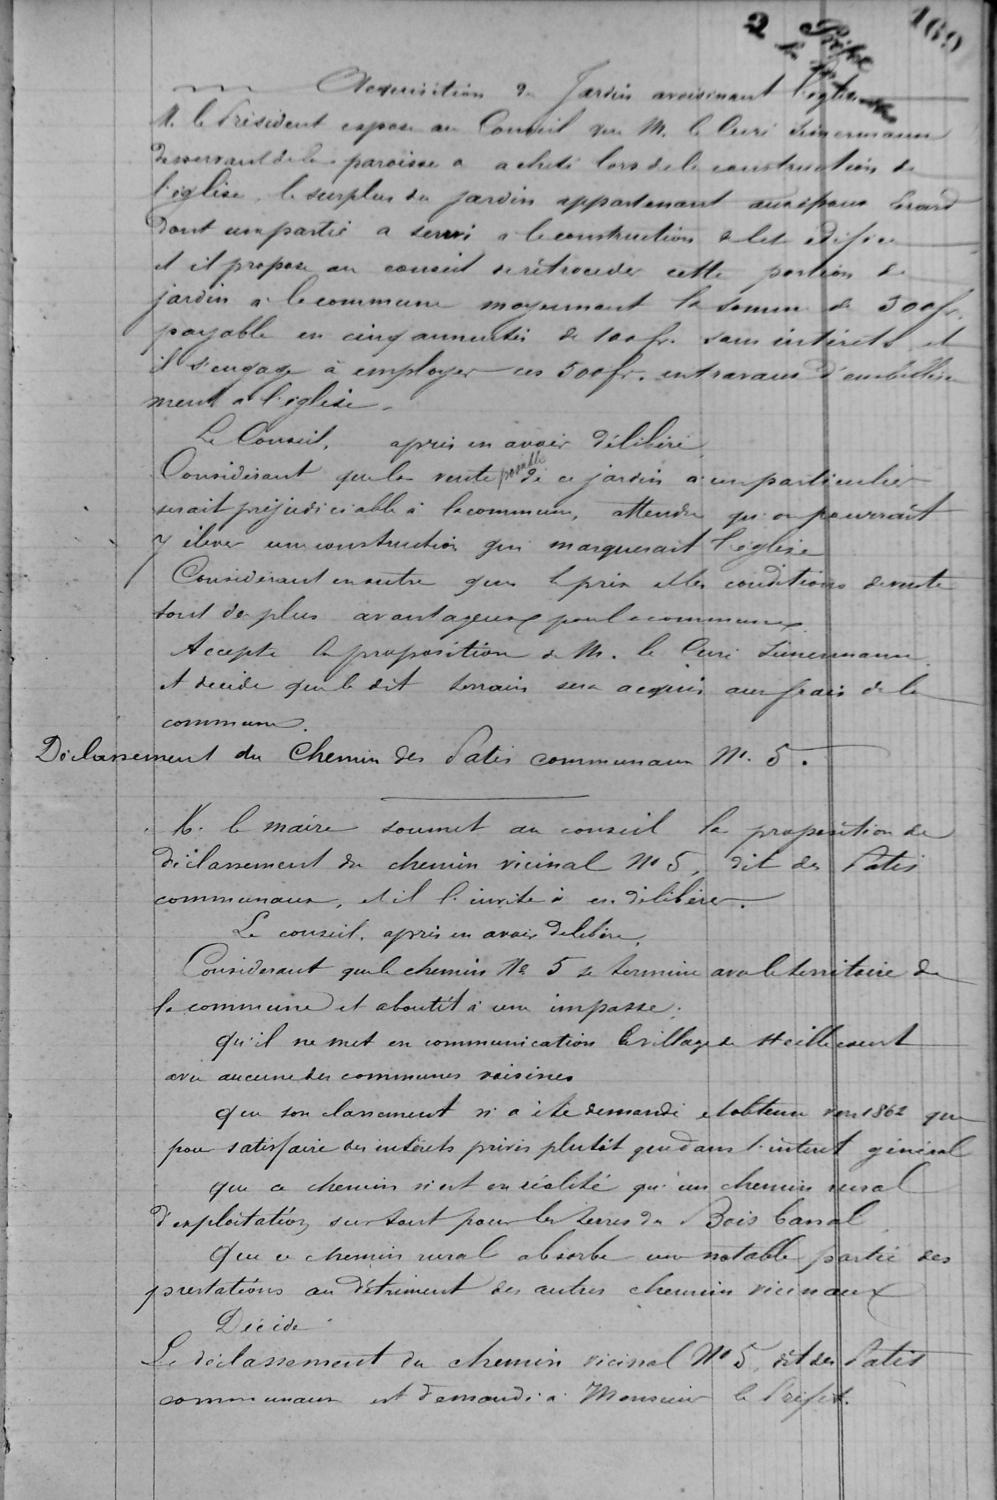 169
2
Acquisition du Jardin avoisinant l'église
M. le Président expose au Conseil que M. le Curé Linnermann
desservant de la paroisse a acheté lors de la construction de
l'église, le surplus du jardin appartenant aux époux
dont un partie a servi à la construction de cet édifice
et il propose au conseil de rétroceder cette portion de
jardin à la commune moyennant la somme de 500 fr.
payable en cinq annuités de 100 fr. sans intérêts et
il s'engage à employer ces 500 fr. en travaux d'embellisse
ment à l'église.
Le Conseil, après en avoir délibéré,
Considérant que la vente possible de ce jardin à un particulier
serait préjudiciable à la commune, attendu qu'on pourrait
y élever une construction qui masquerait l'église
Considérant en outre que le prix et les conditions de vente
sont des plus avantageux pour la commune
Accepte la proposition de M. le Curé Linnermann
et décide que le dit terrain sera acquis aux frais de la
commune.
Déclassement du Chemin des Patis communaux No. 5.
M. le maire soumet au conseil la proposition de
déclassement du chemin vicinal No 5, dit des Patis
communaux, et il l'invite à en délibérer.
Le conseil, après en avoir délibéré,
Considerant que le chemin No 5 se termine avec le territoire de
la commune et aboutit à une impasse;
Qu'il ne met en communication le village de
avec aucune des communes voisines
Que son classement n'a été demandé et obtenu vers 1862 que
pour satisfaire des intérêts privés plutôt que dans l'intérêt général
que ce chemin n'est en réalité qu'un chemin rural
d'exploitation surtout pour les terres du Bois Canal
Que ce chemin rural absorbe une notable partie des
prestations au détriment des autres chemin vicinaux
Décide
Le déclassement du chemin vicinal No 5, dit des Patis
communaux est demandé à Monsieur le Préfet.